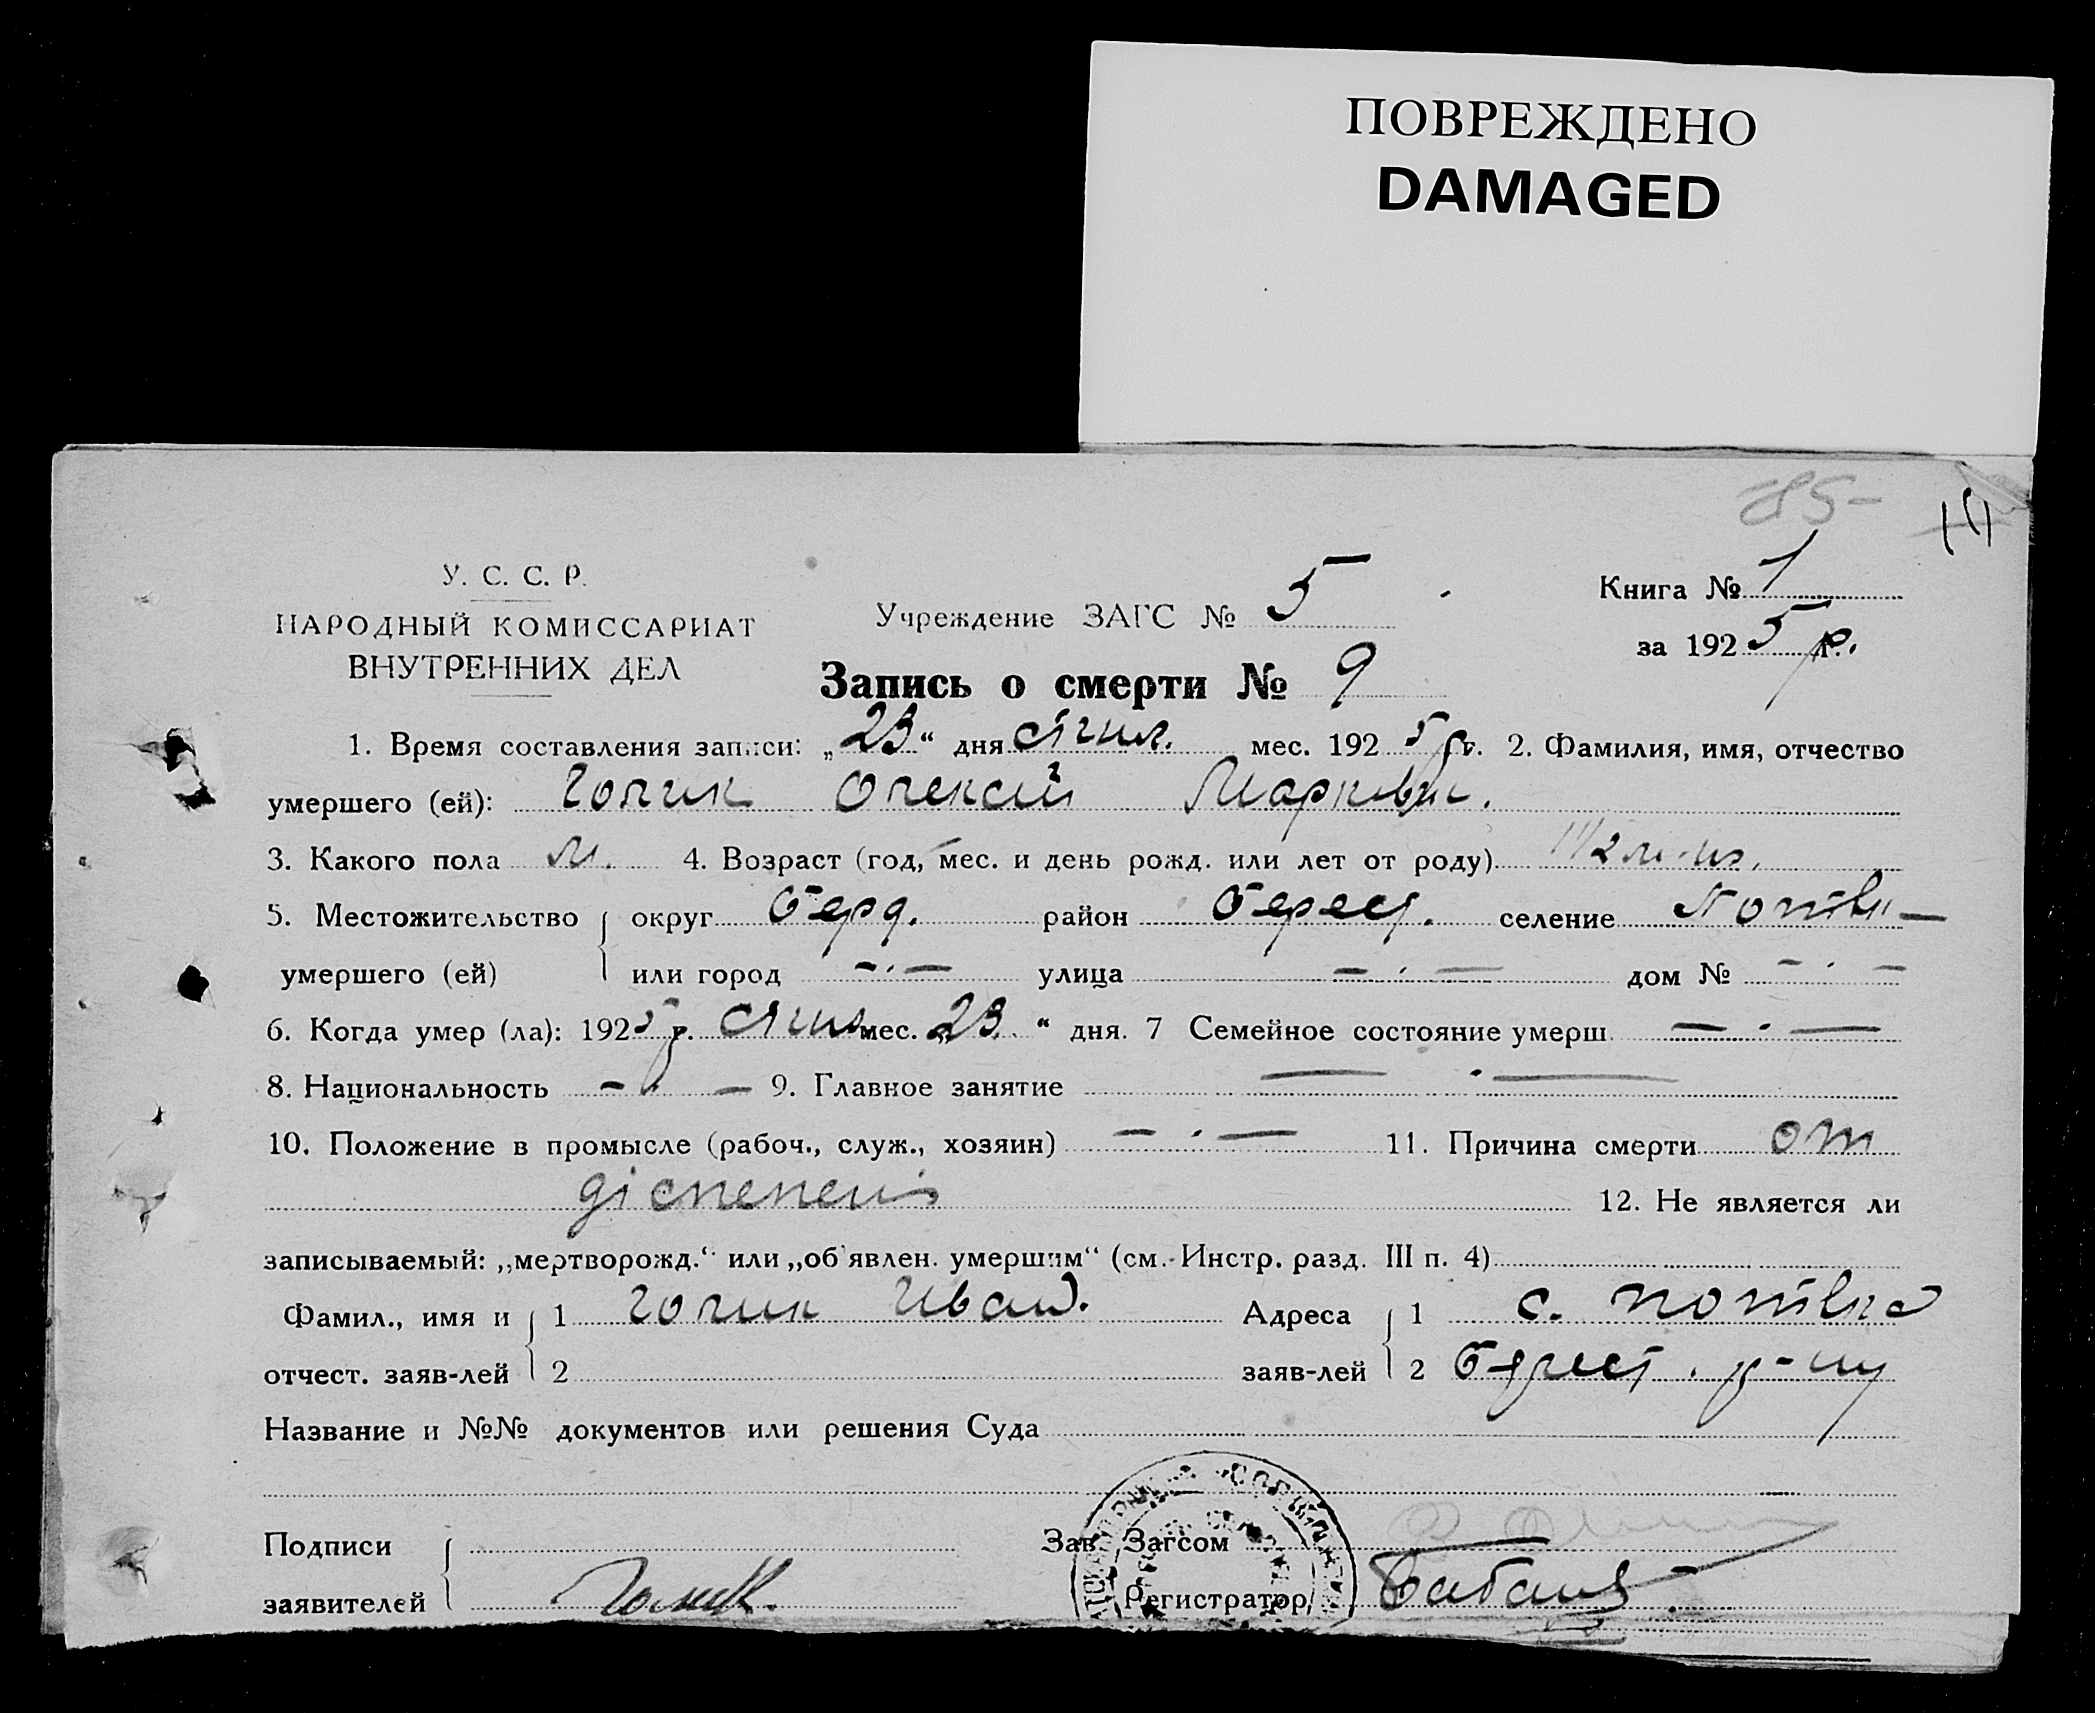 ПОВРЕЖДЕНО
DAMAGED
85-
У. С. С. Р.
НАРОДНЫЙ КОМИССАРИАТ
ВНУТРЕННИХ ДЕЛ
Учреждение ЗАГС № 5
Книга № 1
за 1925 р.
Запись о смерти № 9
1. Время составления записи: „23“ дня січня мес. 1925 р. 2. Фамилия, имя, отчество
умершего (ей): Голик Олексій Маркович.
3. Какого пола м. 4. Возраст (год, мес. и день рожд. или лет от роду) 1 1/2
5. Местожительство округ Берд. район Берест. селение Попівк
умершего (ей) или город — . — улица — . — дом № — . —
6. Когда умер (ла): 1925 р. січня мес. „23“ дня. 7 Семейное состояние умерш. — . —
8. Национальность — . — 9. Главное занятие — . —
10. Положение в промысле (рабоч., служ., хозяин) — . — 11. Причина смерти от
12. Не является ли
записываемый: „мертворожд.“ или „об'явлен. умершим“ (см. Инстр. разд. III п. 4)
Фамил., имя и 1 Голик Иван. Адреса 1 с. Попівка
отчест. заяв-лей 2 заяв-лей 2 Берест. р-ну
Название и №№ документов или решения Суда
Подписи Зав. Загсом
заявителей Голик. Регистратор